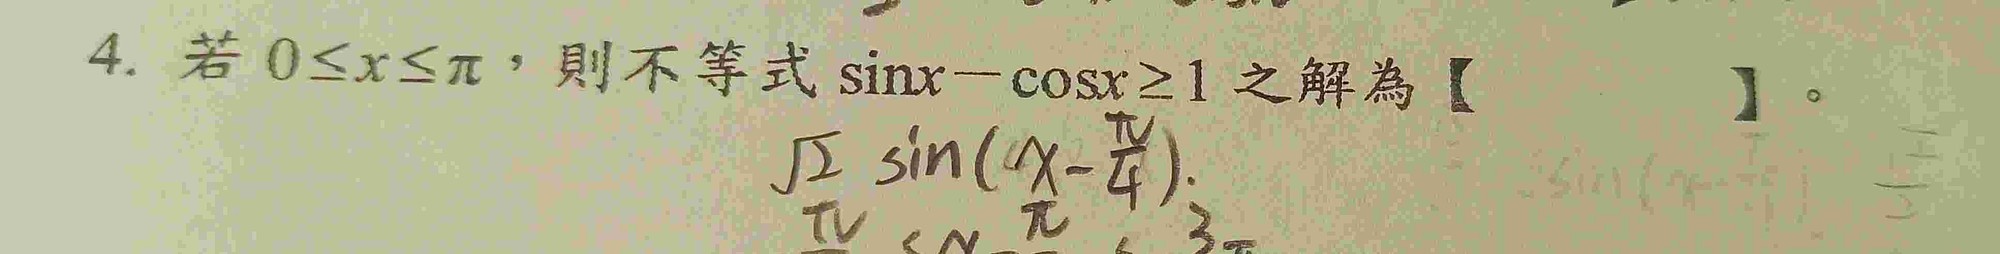 4. 若 0≤x≤π，則不等式 sinx－cosx≥1 之解為【　　　】。
√2 sin(x-π/4).